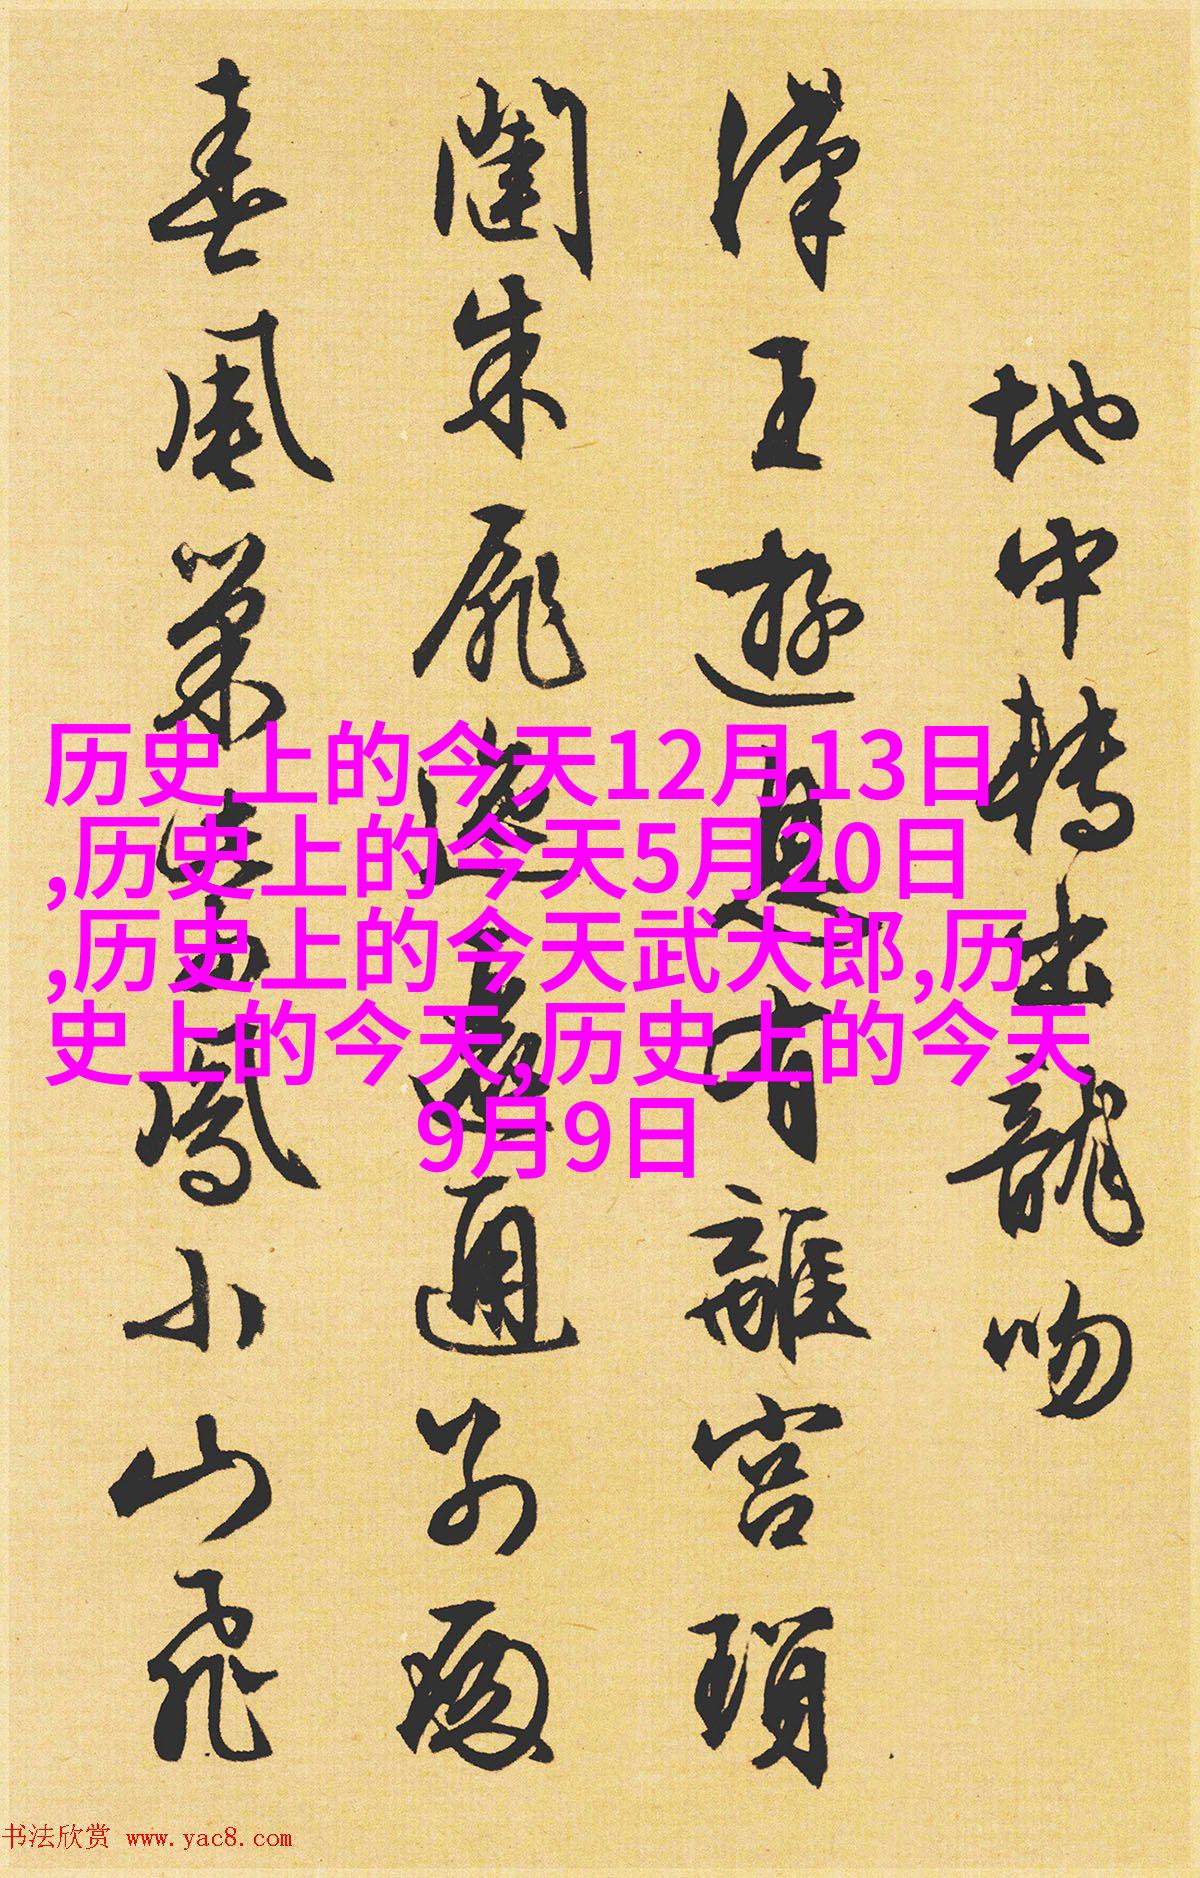 地中轉出龍吻
漢王遊息有離宮瑣
闥朱扉迤邐通別殿
春風巢紫鳳小山飛
历史上的今天12月13日
,历史上的今天5月20日
,历史上的今天武大郎,历
史上的今天,历史上的今天
9月9日
书法欣赏 www.yac8.com